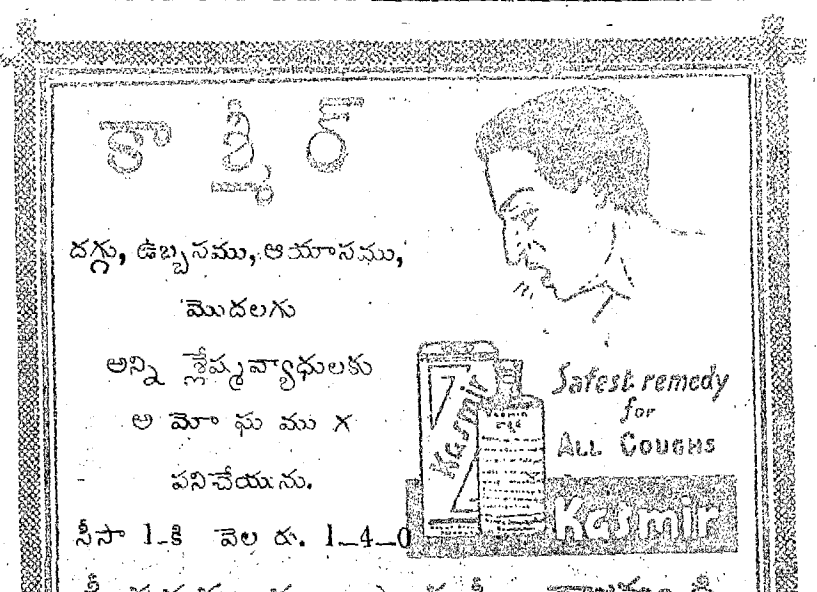 కాశ్మీర్
దగ్గు, ఉబ్బసము, ఆయాసము,
మొదలగు
అన్ని శ్లేష్మవ్యాధులకు
అ మో ఘ ము గ
పనిచేయును.
సీసా 1-కి వెల రు. 1—4—0
Kasmir
Safest remedy
for
ALL COUGHS
Kasmir